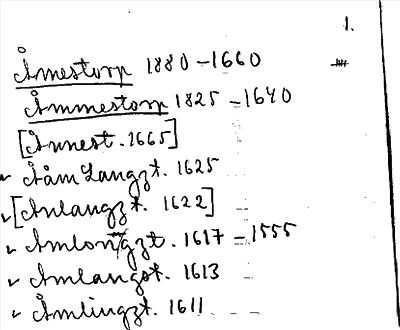 1.
Åmestorp 1880-1660
Åmmestorp 1825-1640
[Åmnest. 1665]
Ååm Langzt. 1625
[Anlangzt. 1622]
Amlongzt. 1617-1555
Amlangst. 1613
Åmlingzt. 1611